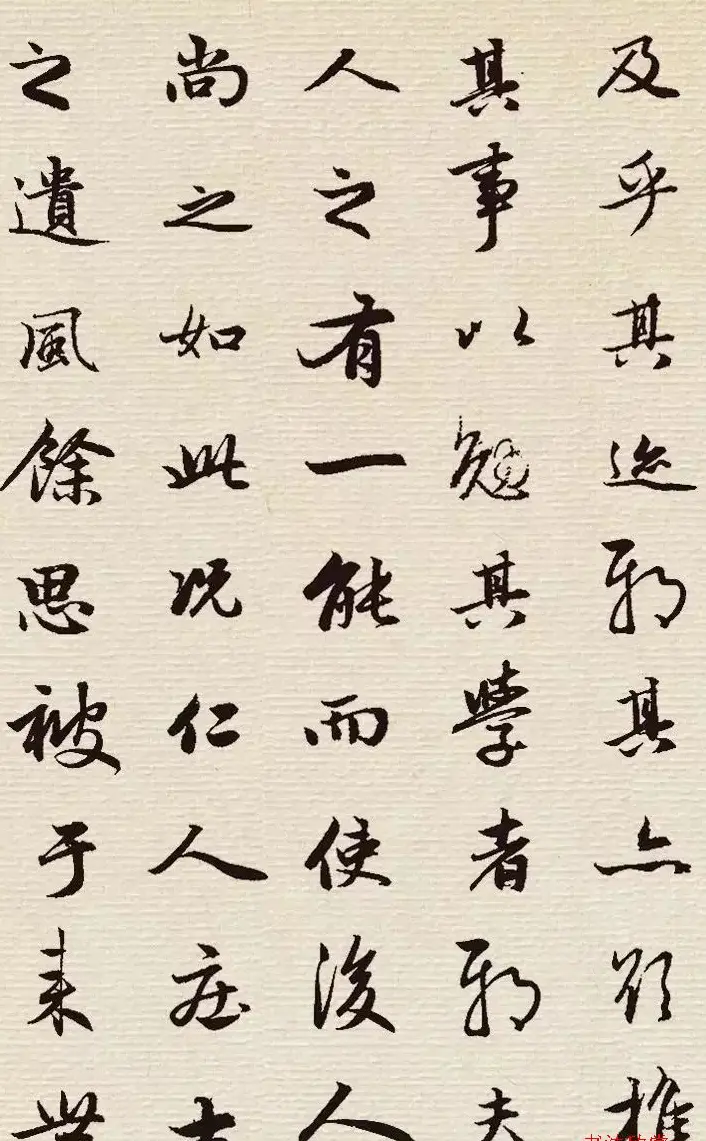 及乎其迹邪其亦欲推
其事以勉其學者邪夫
人之有一能而使後人
尚之如此况仁人庄士
之遺風餘思被于来世